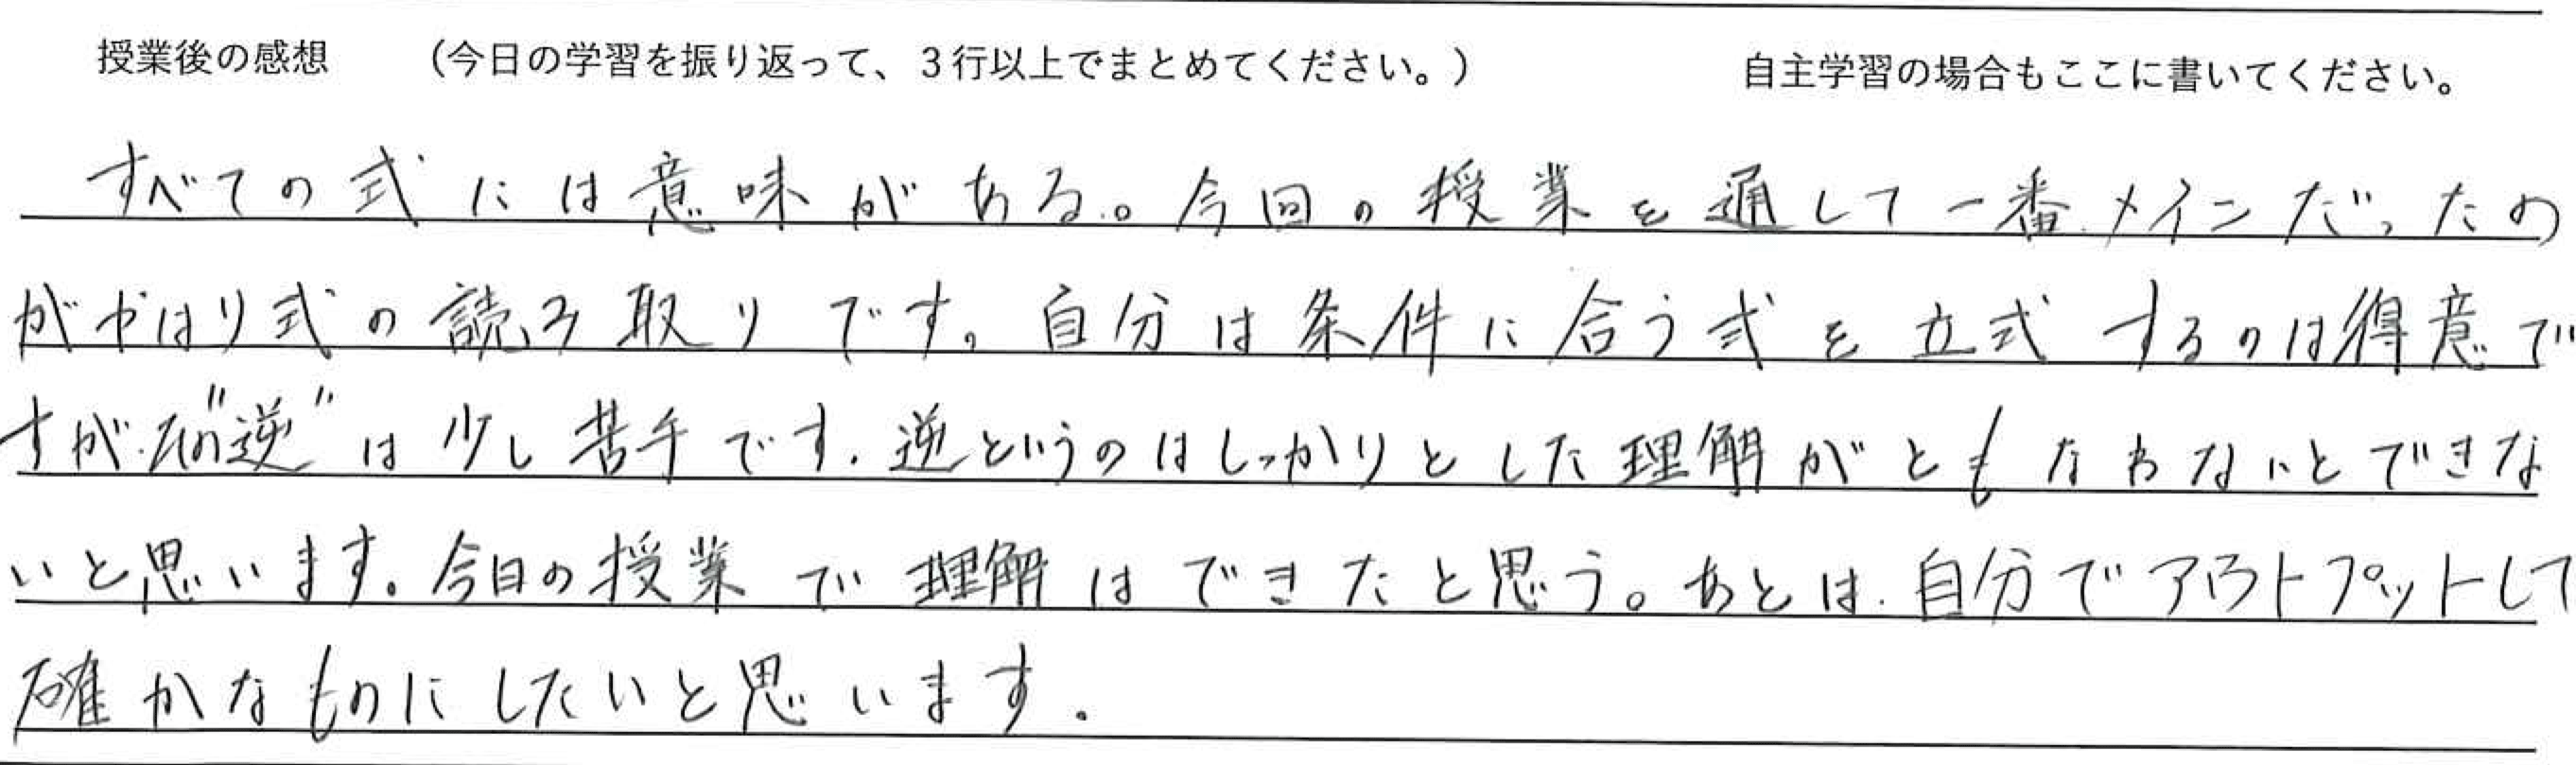 授業後の感想 (今日の学習を振り返って、3行以上でまとめてください。) 自主学習の場合もここに書いてください。
すべての式には意味がある。今回の授業を通して一番メインだったの
がやはり式の読み取りです。自分は条件に合う式を立式するのは得意で
すが、"逆"は少し苦手です。逆というのはしっかりとした理解がともなわないとできな
いと思います。今日の授業で理解はできたと思う。あとは、自分でアウトプットして
確かなものにしたいと思います。